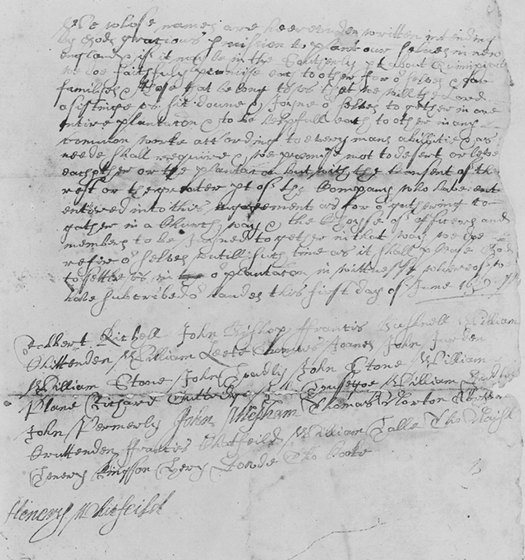 We whose names are heereunder written intending
by Gods gracious pmission to plant our selves in new
england & if it may be in the southerly pt about Quinnipiack
we doe faithfully promise each to other for or selves & for or
families & those that belong to us that we will the Lord
assisting us sit downe & joyne or selves together in one
intire plantation & to be helpfull each to other in any
common worke according to every mans abilitie & as
neede shall require & we promise not to desert or leave
each other or the plantation but with the consent of the
rest or the greater pt of the Company who have entred
into this engagement as for or gathering to
gether in a Church way & the choyse of officers and
members to be joyned together in that way we do
refer or selves untill such time as it shall please God
to settle us in or plantation in wittnesse whereof we
have subscribed or hands this first day of June 1639
Robbert Kitchell John Bishop Francis Bushnell William
Chittenden William Leete Thomas Joanes John Jurden
William Stone John Hoadly John Stone William
Plane Richard Guttridge William Dudley
John Permerly John Mepham Thomas Norton Abraham
Cruttenden Francis Chatfeild William Halle Tho Naish
Henery Kingnon Henry Doude Tho Cooke
Henery Whitfeild